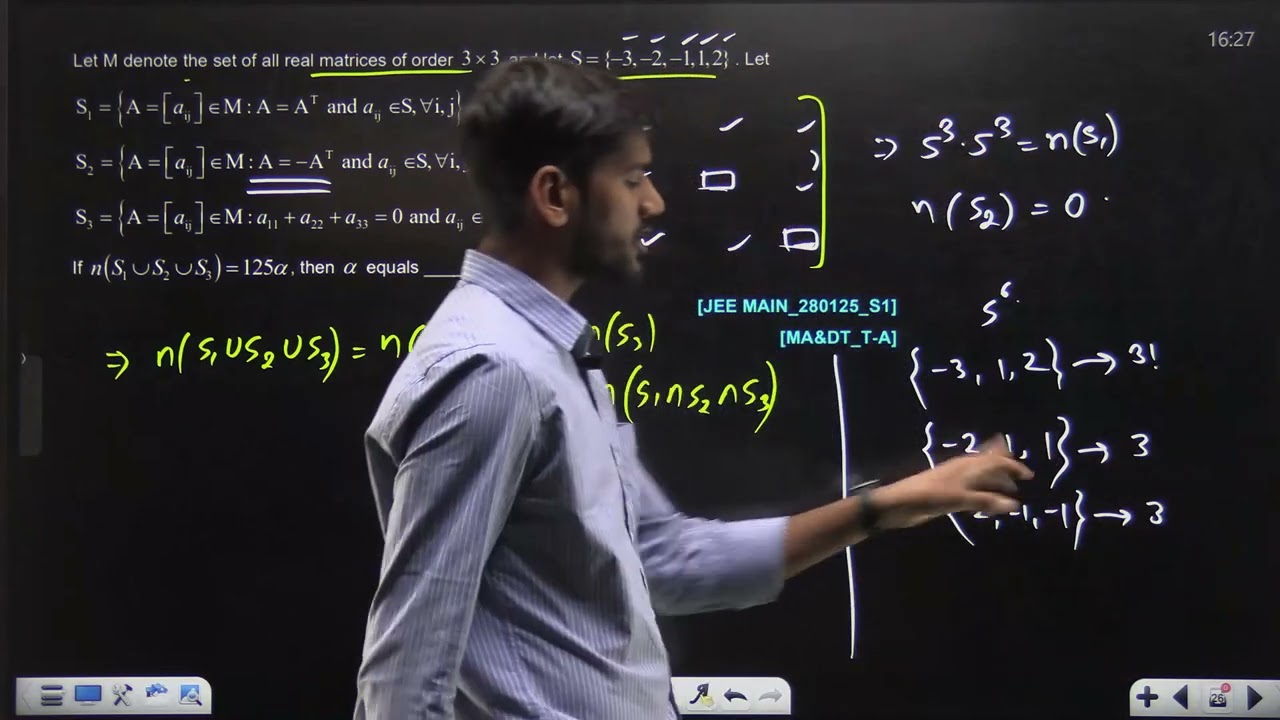 16:27
Let M denote the set of all real matrices of order 3 × 3 S = {−3, −2, −1, 1, 2} . Let
S₁ = {A = [aᵢⱼ] ∈ M : A = Aᵀ and aᵢⱼ ∈ S, ∀i, j}
S₂ = {A = [aᵢⱼ] ∈ M : A = −Aᵀ and aᵢⱼ ∈ S, ∀i,
S₃ = {A = [aᵢⱼ] ∈ M : a₁₁ + a₂₂ + a₃₃ = 0 and aᵢⱼ ∈
If n(S₁ ∪ S₂ ∪ S₃) = 125α, then α equals ____
[JEE MAIN_280125_S1]
[MA&DT_T-A]
⇒ n(S₁∪S₂∪S₃) = n(
n(S₃)
n(S₁∩S₂∩S₃)
⇒ 5³·5³ = n(S₁)
n(S₂) = 0
5⁶
{−3, 1, 2} → 3!
{−2, 1, 1} → 3
, −1, −1} → 3
26